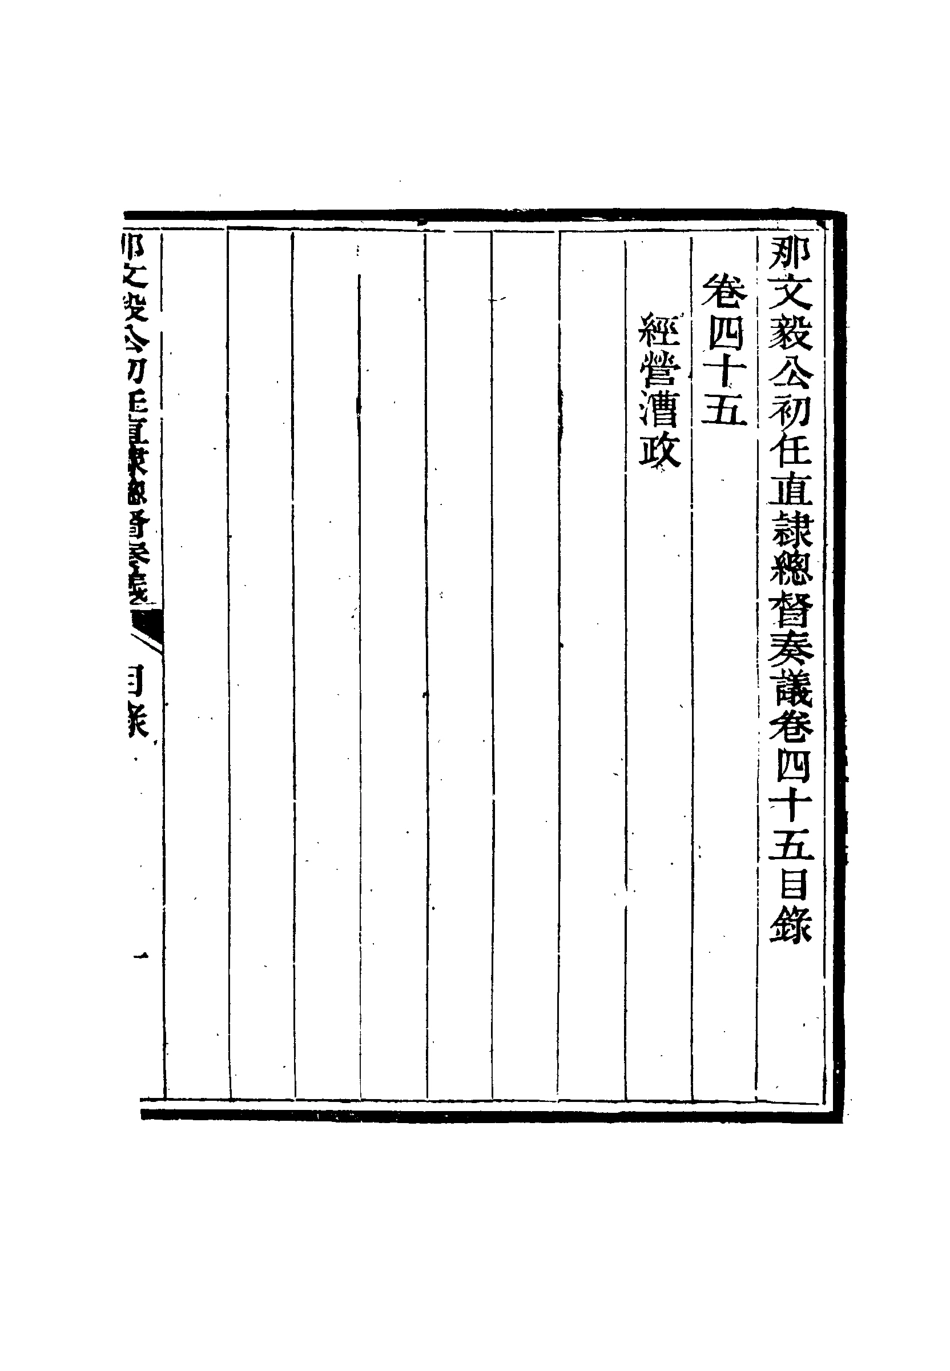 那文毅公初任直隷總督奏議卷四十五目錄
卷四十五
經營漕政
那文毅公初任直隷總督奏議
目錄
一